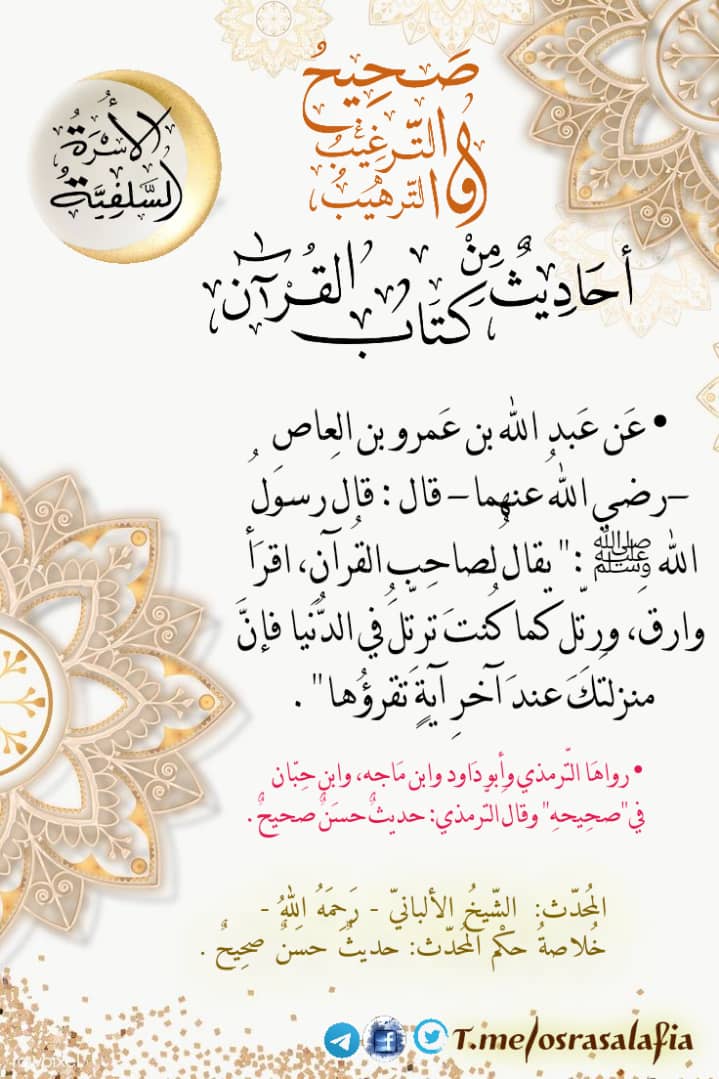 صَحِيحُ
التّرغِيبُ
والتّرهيبُ،
الأُسْرَةُ
السَّلَفِيَّةُ
أحَادِيثٌ مِنْ كِتَاب القُرْآن
• عَن عَبدِ الله بن عَمرو بن العِاص
–رضي اللهُ عنهما– قال : قال رسوَلُ
الله ﷺ :" يقالُ لصاحِبِ القُرآنِ، اقرَأ
وارقَ، ورتّل كما كُنتَ ترتّلُ في الدُّنيا فإنَّ
منزلتكَ عندَ آخرِ آيةٍ تَقرؤُها " .
• رواهَا التّرمذي وأبو دَاود وابن مَاجه، وابن حِبّان
في "صحِيحهِ" وقال التّرمذي: حديثٌ حسَنٌ صحيحٌ .
المُحدّث: الشّيخُ الألبانيّ - رَحمَهُ اللهُ -
خُلاصةُ حكْم المُحدّث: حديثٌ حسَنٌ صحِيحٌ .
T.me/osrasalafia